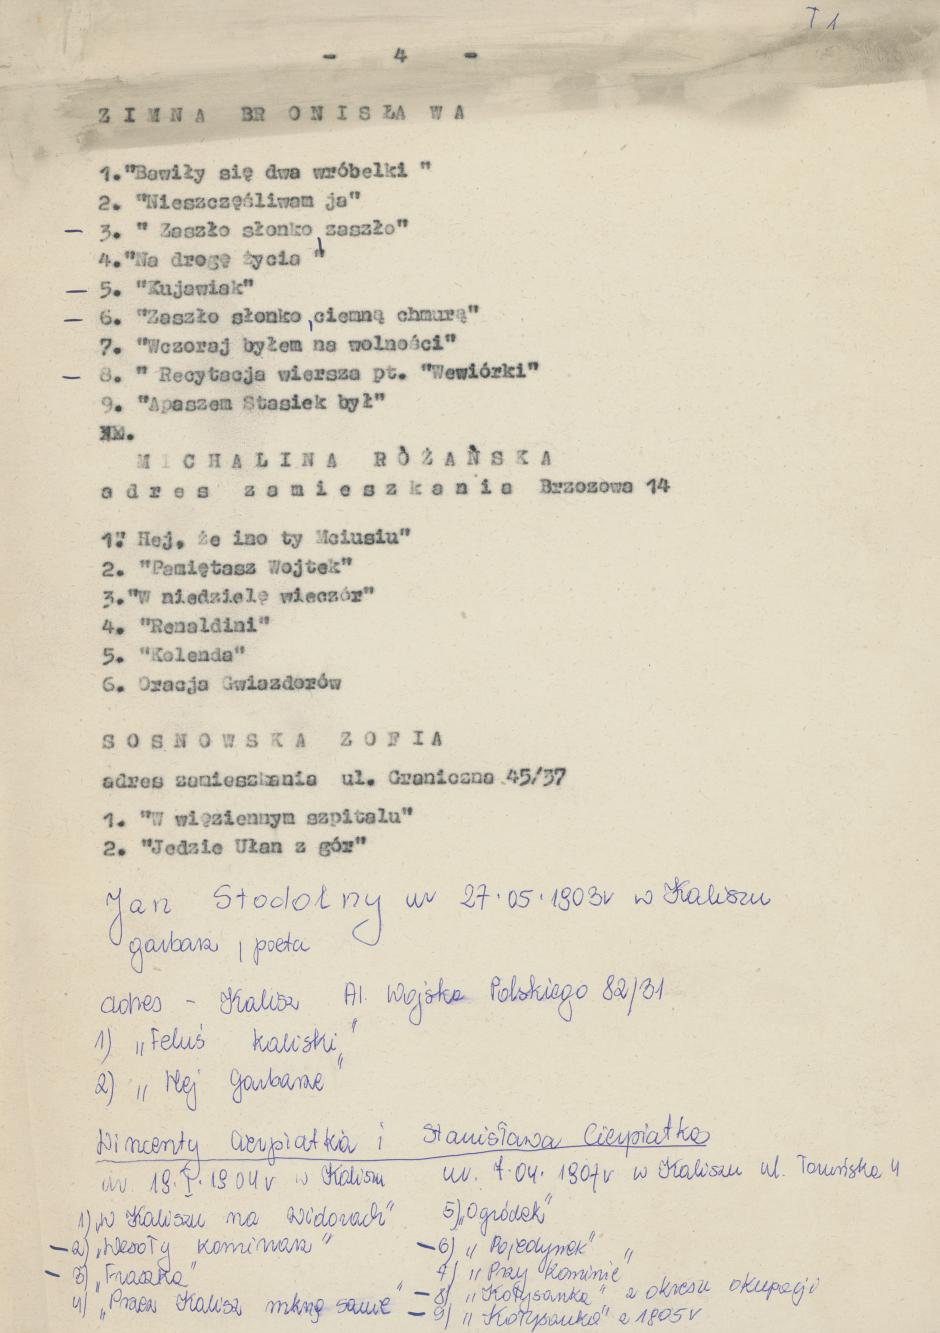 T 1
- 4 -
ZIMNA BRONISŁAWA
1."Bawiły się dwa wróbelki "
2. "Nieszczęśliwam ja"
- 3. " Zaszło słonko, zaszło"
4."Na drogę życia "
- 5. "Kujawiak"
- 6. "Zaszło słonko ,ciemną chmurą"
7. "Wczoraj byłem na wolności"
- 8. " Recytacja wiersza pt. "Wewiórki"
9. "Apaszem Stasiek był"
MICHALINA RÓŻAŃSKA
adres zamieszkania Brzozowa 14
1." Hej, że ino ty Mciusiu"
2. "Pamiętasz Wojtek"
3."W niedzielę wieczór"
4. "Renaldini"
5. "Kolenda"
6. Oracja Gwiazdorów
SOSNOWSKA ZOFIA
adres zamieszkania ul. Graniczna 45/37
1. "W więziennym szpitalu"
2. "Jedzie Ułan z gór"
Jan Stodolny ur 27.05.1903r w Kaliszu
garbarz, poeta
adres - Kalisz Al. Wojska Polskiego 82/31
1) „Feluś kaliski"
2) „Hej Garbarze"
Wincenty Cierpiatka i Stanisława Cierpiatka
ur. 19.I.1904r w Kaliszu ur. 7.04.1907r w Kaliszu ul. Toruńska 4
1) „W Kaliszu na Widorach"
- 2) „Wesoły kominiarz"
- 3) „Fraszka"
4) „Przez Kalisz mkną sanie"
5) „Ogródek"
- 6) „Pojedynek"
7) „Przy kominie"
- 8) „Kołysanka" z okresu okupacji
- 9) „Kołysanka" z 1905r